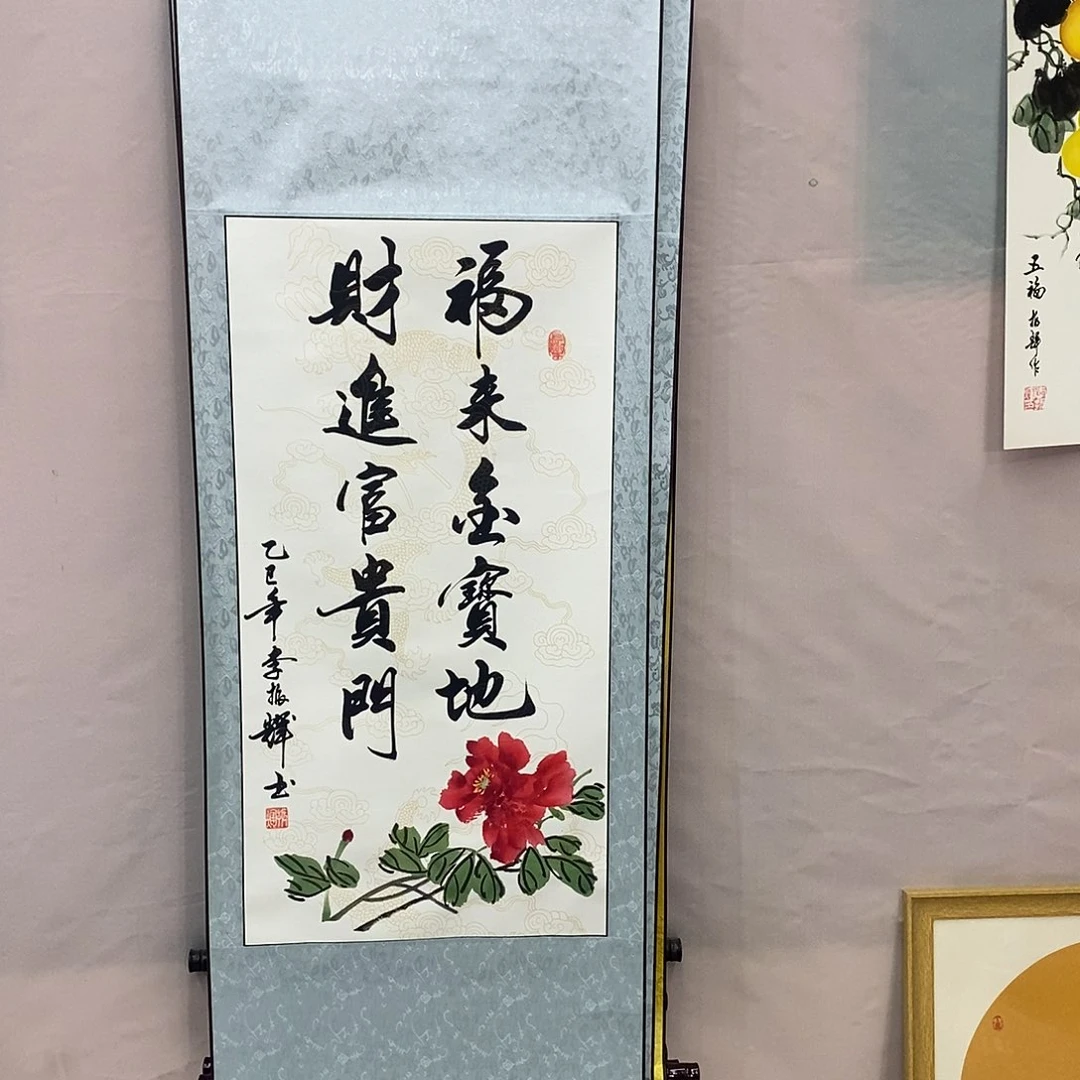 福来金寳地
財進富貴門
乙巳年李振輝书
五福 振輝作